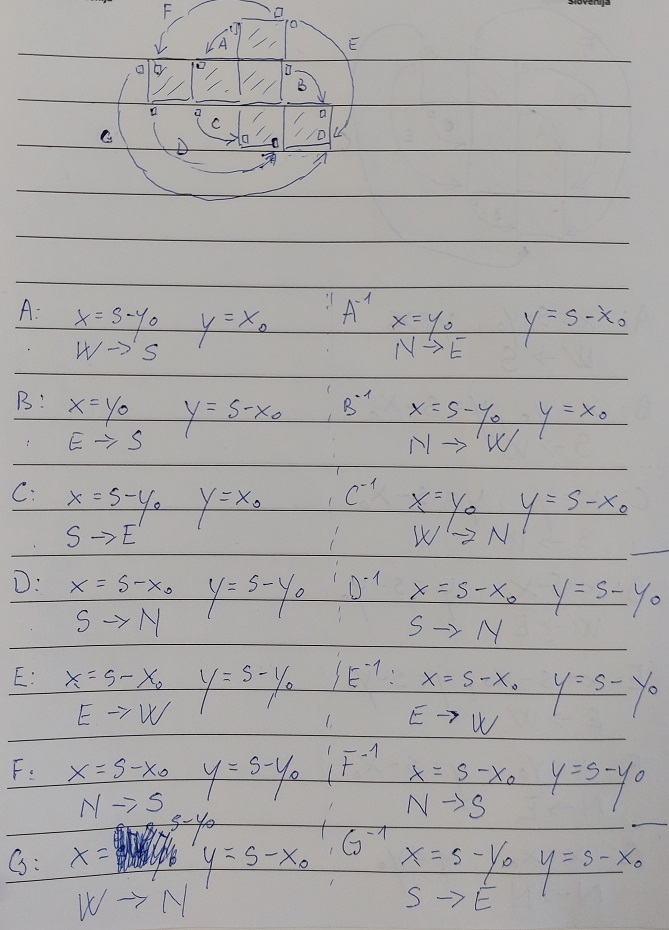 Slovenija
F
A
E
B
C
G
D
A: x = S-y₀ y = x₀ A⁻¹ x = y₀ y = S-x₀
W → S N → E
B: x = y₀ y = S-x₀ B⁻¹ x = S-y₀ y = x₀
E → S N → W
C: x = S-y₀ y = x₀ C⁻¹ x = y₀ y = S-x₀
S → E W → N
D: x = S-x₀ y = S-y₀ D⁻¹ x = S-x₀ y = S-y₀
S → N S → N
E: x = S-x₀ y = S-y₀ E⁻¹: x = S-x₀ y = S-y₀
E → W E → W
F: x = S-x₀ y = S-y₀ F⁻¹ x = S-x₀ y = S-y₀
N → S N → S
G: x = S-y₀ y = S-x₀ G⁻¹ x = S-y₀ y = S-x₀
W → N S → E